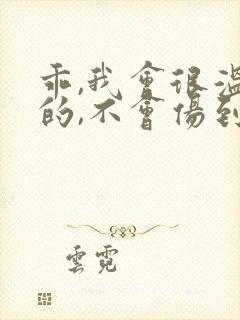 乖,我會很溫
的,不會傷到
雲霓